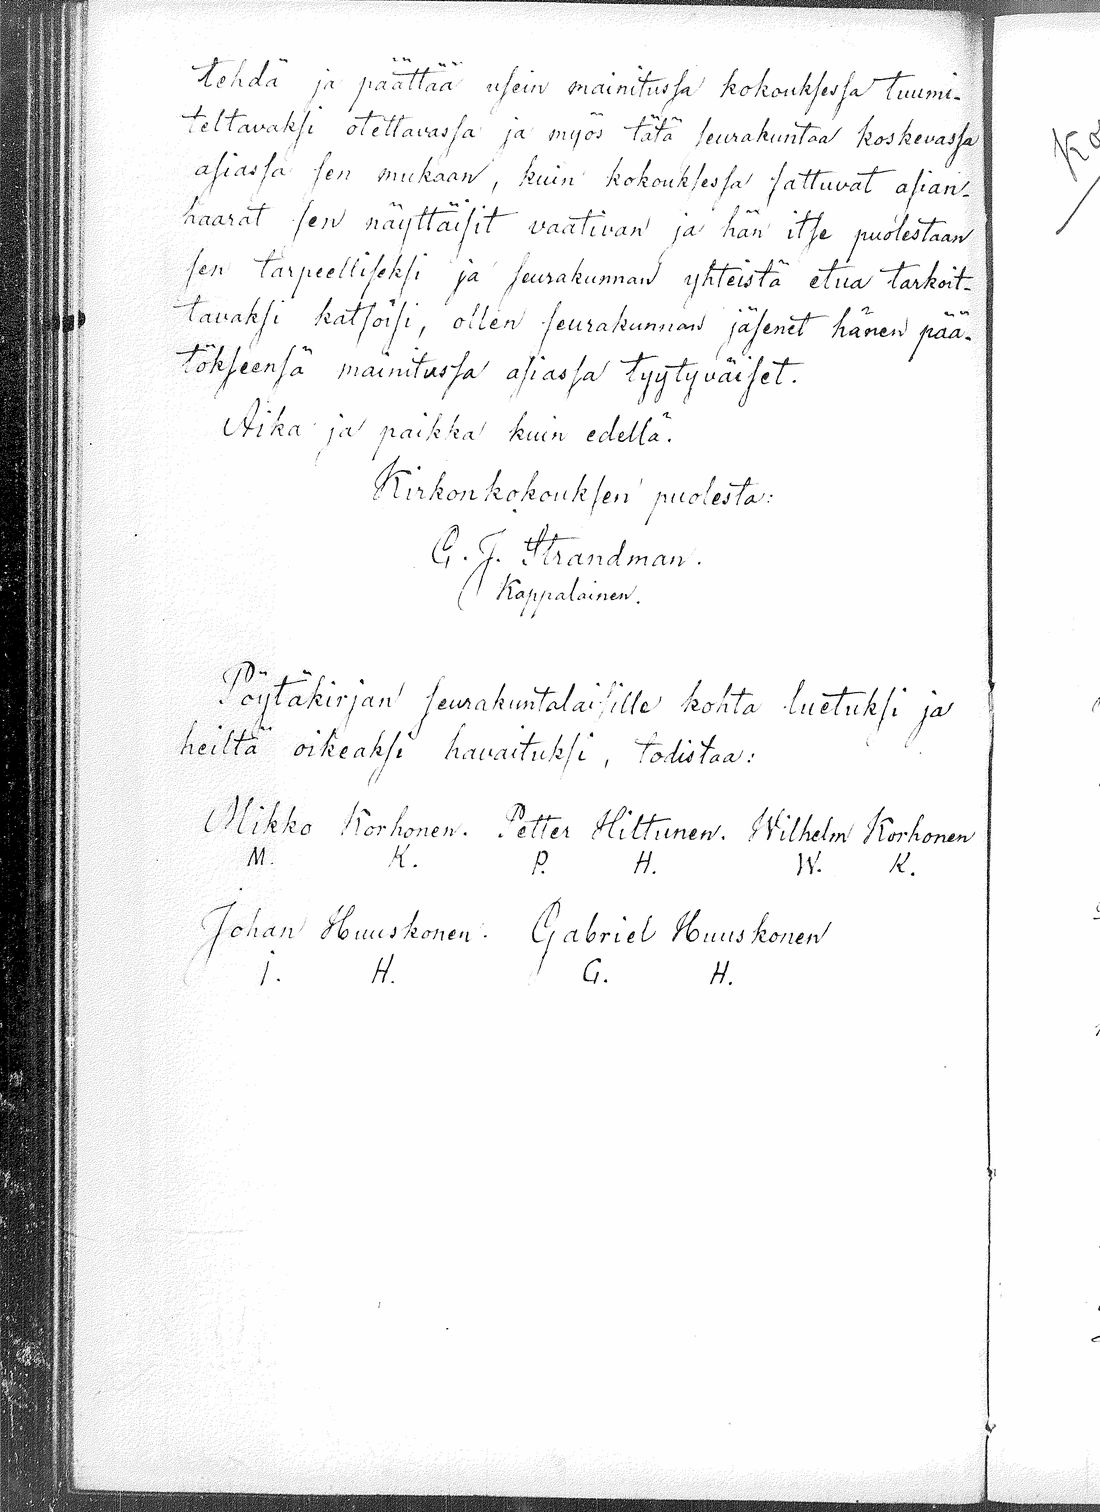 tehdä ja päättää usein mainitussa kokouksessa tuumi-
teltavaksi otettavassa ja myös tätä seurakuntaa koskevassa
asiassa sen mukaan, kuin kokouksessa sattuvat asian-
haarat sen näyttäisit vaativan ja hän itse puolestaan
sen tarpeelliseksi ja seurakunnan yhteistä etua tarkoit-
tavaksi katsoisi, ollen seurakunnan jäsenet hänen pää-
tökseensä mainitussa asiassa tyytyväiset.
Aika ja paikka kuin edellä.
Kirkonkokouksen puolesta:
G. J. Strandman.
Kappalainen.
Pöytäkirjan seurakuntalaisille kohta luetuksi ja
heiltä oikeaksi havaituksi, todistaa:
Mikko Korhonen. Petter Hiltunen. Wilhelm Korhonen
M. K. P. H. W. K.
Johan Huuskonen. Gabriel Huuskonen
J. H. G. H.